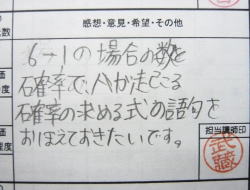 感想・意見・希望・その他
6→1の場合の数と
確率で、Aが起こる
確率の求める式の語句を
おぼえておきたいです。
担当講師印
武蔵